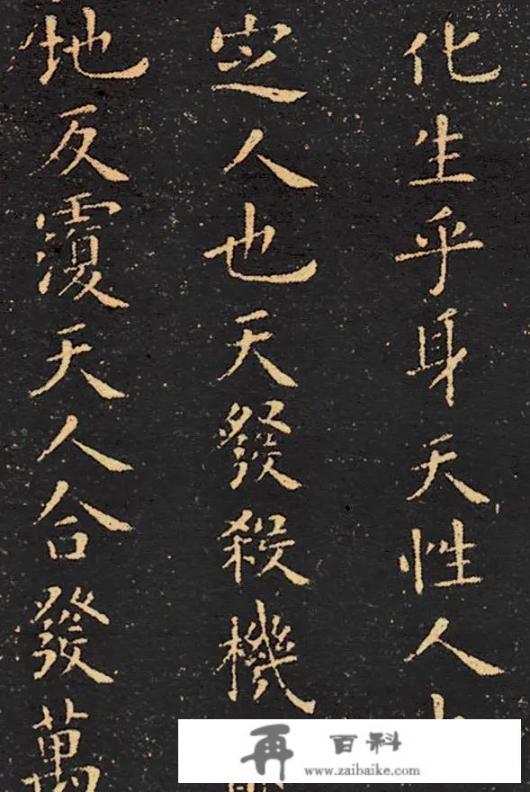 化生乎身天性人
定人也天發殺機
地反覆天人合發萬
再 百科
www.zaibaike.com